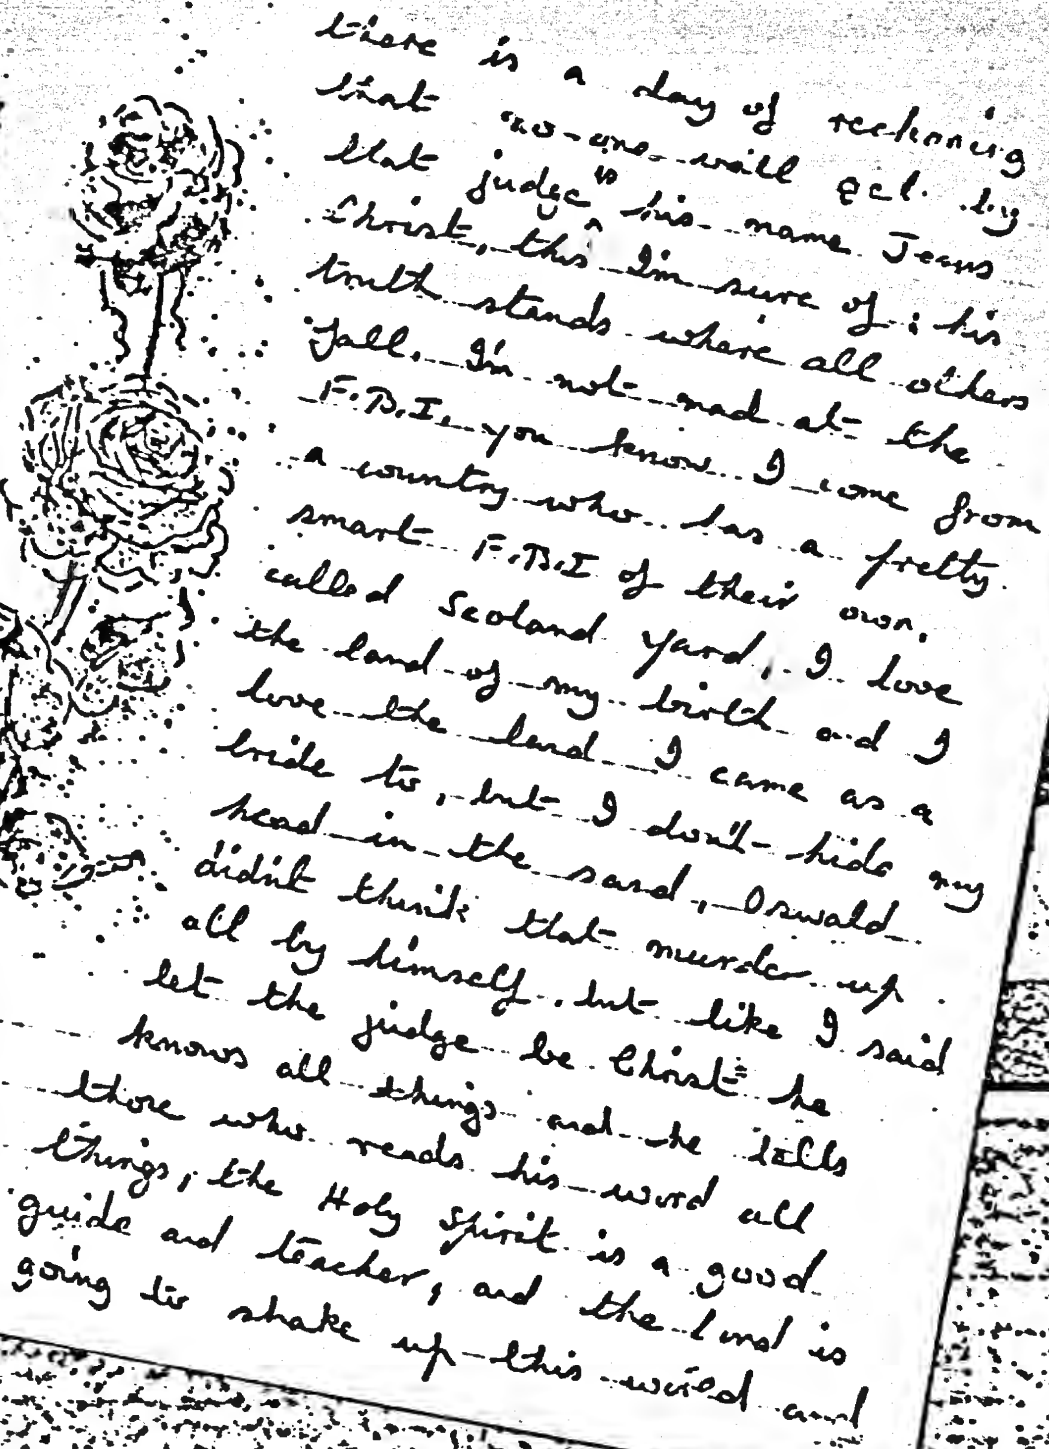 there is a day of reckoning
that no-one will get by
that judge is his name Jesus
Christ, this I'm sure of; his
truth stands where all others
fall. I'm not mad at the
F.B.I. you know I come from
a country who has a pretty
smart F.B.I of their own.
called Scoland yard, I love
the land of my birth and I
love the land I came as a
bride to, but I don't hide my
head in the sand, Oswald
didn't think that murder up
all by himself. but like I said
let the judge be Christ= he
knows all things and he tells
those who reads his word all
things, the Holy Spirit is a good
guide and teacher, and the Lord is
going to shake up this world and